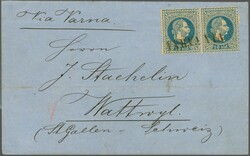 Via Varna
Herrn
J. Staehelin
Wattwyl
(St. Gallen – Schweiz)